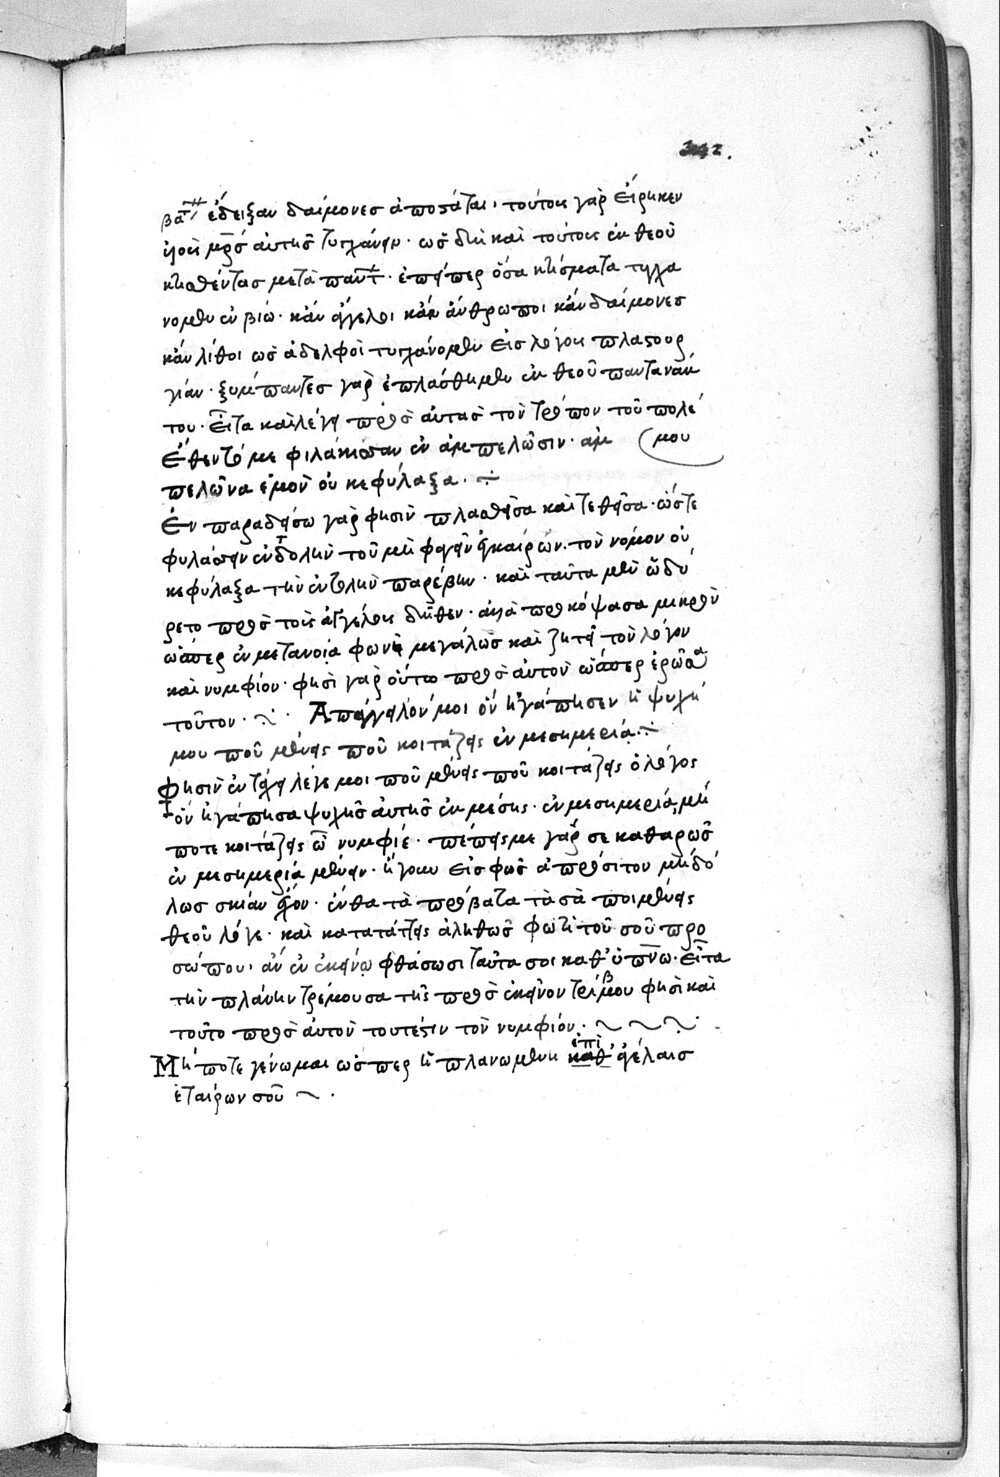 342.
ἔδειξαν δαίμονες ἀποστάται· τούτοις γὰρ εἴρηκεν
αὐτῆς τυγχάνειν· ὡς δὴ καὶ τούτοις ἐκ θεοῦ
κτισθέντας μετὰ ἐπείπερ ὅσα κτίσματα τυγχά
νομεν ἐν βίῳ· κἂν ἄγγελοι κἂν ἄνθρωποι κἂν δαίμονες
κἂν λίθοι ὡς ἀδελφοὶ τυγχάνομεν εἰς λόγον πλαστουρ
γίαν· ξύμπαντες γὰρ ἐπλάσθημεν ἐκ θεοῦ παντάνακ
του· εἶτα καὶ λέγει πρὸς αὐτὰς τὸν τρόπον τοῦ πολέ
μου
ἔθεντό με φιλάκισσαν ἐν ἀμπελῶσιν· ἀμ
πελῶνα ἐμὸν οὐκ ἐφύλαξα.
Ἐν παραδείσῳ γάρ φησιν πλασθεῖσα καὶ τεθεῖσα· ὥστε
φυλάσσειν ἐντολὴν τοῦ μὴ φαγεῖν τὸν νόμον οὐ
κ ἐφύλαξα τὴν ἐντολὴν παρέβην· καὶ ταῦτα μὲν ὠδύ
ρετο πρὸς τοῖς ἀγγέλοις δῆθεν· ἀλλὰ προκόψασα μικρὸν
ὥσπερ ἐν μετανοίᾳ φωνεῖ μεγάλως καὶ ζητεῖ τὸν λόγον
καὶ νυμφίον· φησὶ γὰρ οὕτω πρὸς αὐτὸν ὥσπερ ἐρῶσα
τοῦτον· Ἀπάγγειλόν μοι ὃν ἠγάπησεν ἡ ψυχή
μου ποῦ μένεις ποῦ κοιτάζεις ἐν μεσημερίᾳ.
Φησὶν λέγε μοι ποῦ μένεις ποῦ κοιτάζεις ὁ λόγος
ὃν ἠγάπησα ψυχῆς αὐτῆς ἐκ μέσης· ἐν μεσημερίᾳ μή
ποτε κοιτάζεις ὦ νυμφίε· πέπεισμαι γάρ σε καθαρῶς
ἐν μεσημερίᾳ μένειν· ἤγουν εἰς φῶς ἀπρόσιτον μηδό
λως σκιὰν ἔχον· ἔνθα τὰ πρόβατα τὰ σὰ ποιμένεις
θεοῦ λόγε· καὶ κατατάττεις ἀληθῶς φωτὶ τοῦ σοῦ προ
σώπου· ἂν ἐν ἐκείνῳ φθάσωσι ταῦτα σοι καθ' ὕπνῳ· εἶτα
τὴν πλάνην τρέμουσα τῆς πρὸς ἐκεῖνον τρίβου φησὶ καὶ
τοῦτο πρὸς αὐτὸν τουτέστιν τὸν νυμφίον.
ἐπὶ
Μήποτε γένωμαι ὥσπερ ἡ πλανωμένη καθ' ἀγέλαις
ἑταίρων σοῦ